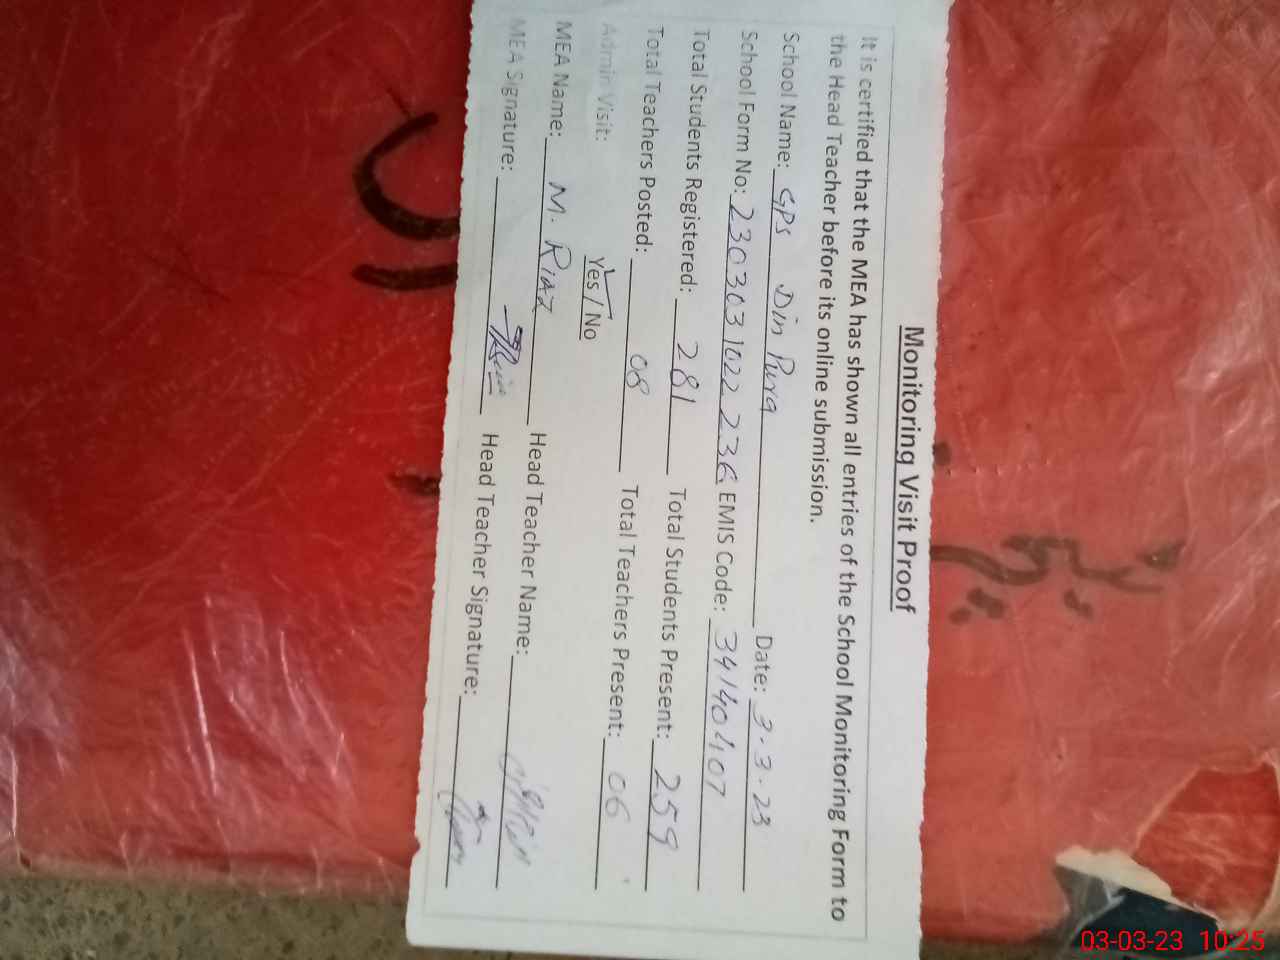 Monitoring Visit Proof
It is certified that the MEA has shown all entries of the School Monitoring Form to
the Head Teacher before its online submission.
School Name: GPS Din Pura Date: 3-3-23
School Form No: 2303031022236 EMIS Code: 34140407
Total Students Registered: 281 Total Students Present: 259
Total Teachers Posted: 08 Total Teachers Present: 06
Admin Visit: Yes / No
MEA Name: M. Riaz Head Teacher Name:
MEA Signature: Head Teacher Signature:
03-03-23 10:25